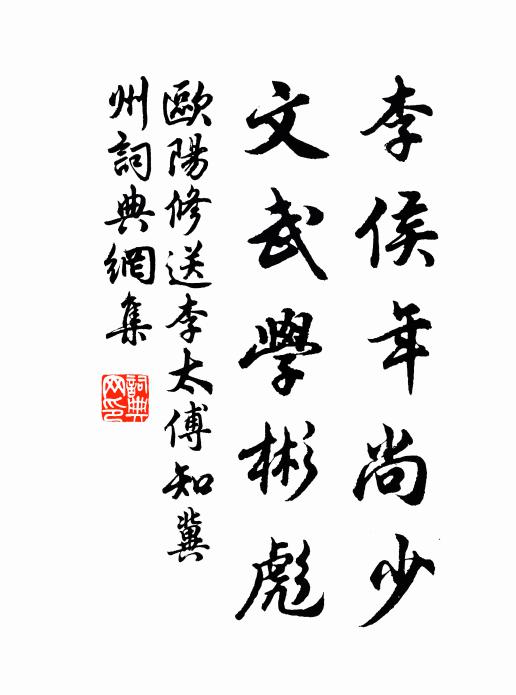 李侯年尚少
文武學彬彪
歐陽修送李太傅知冀
州詞典網集
詞典
网印